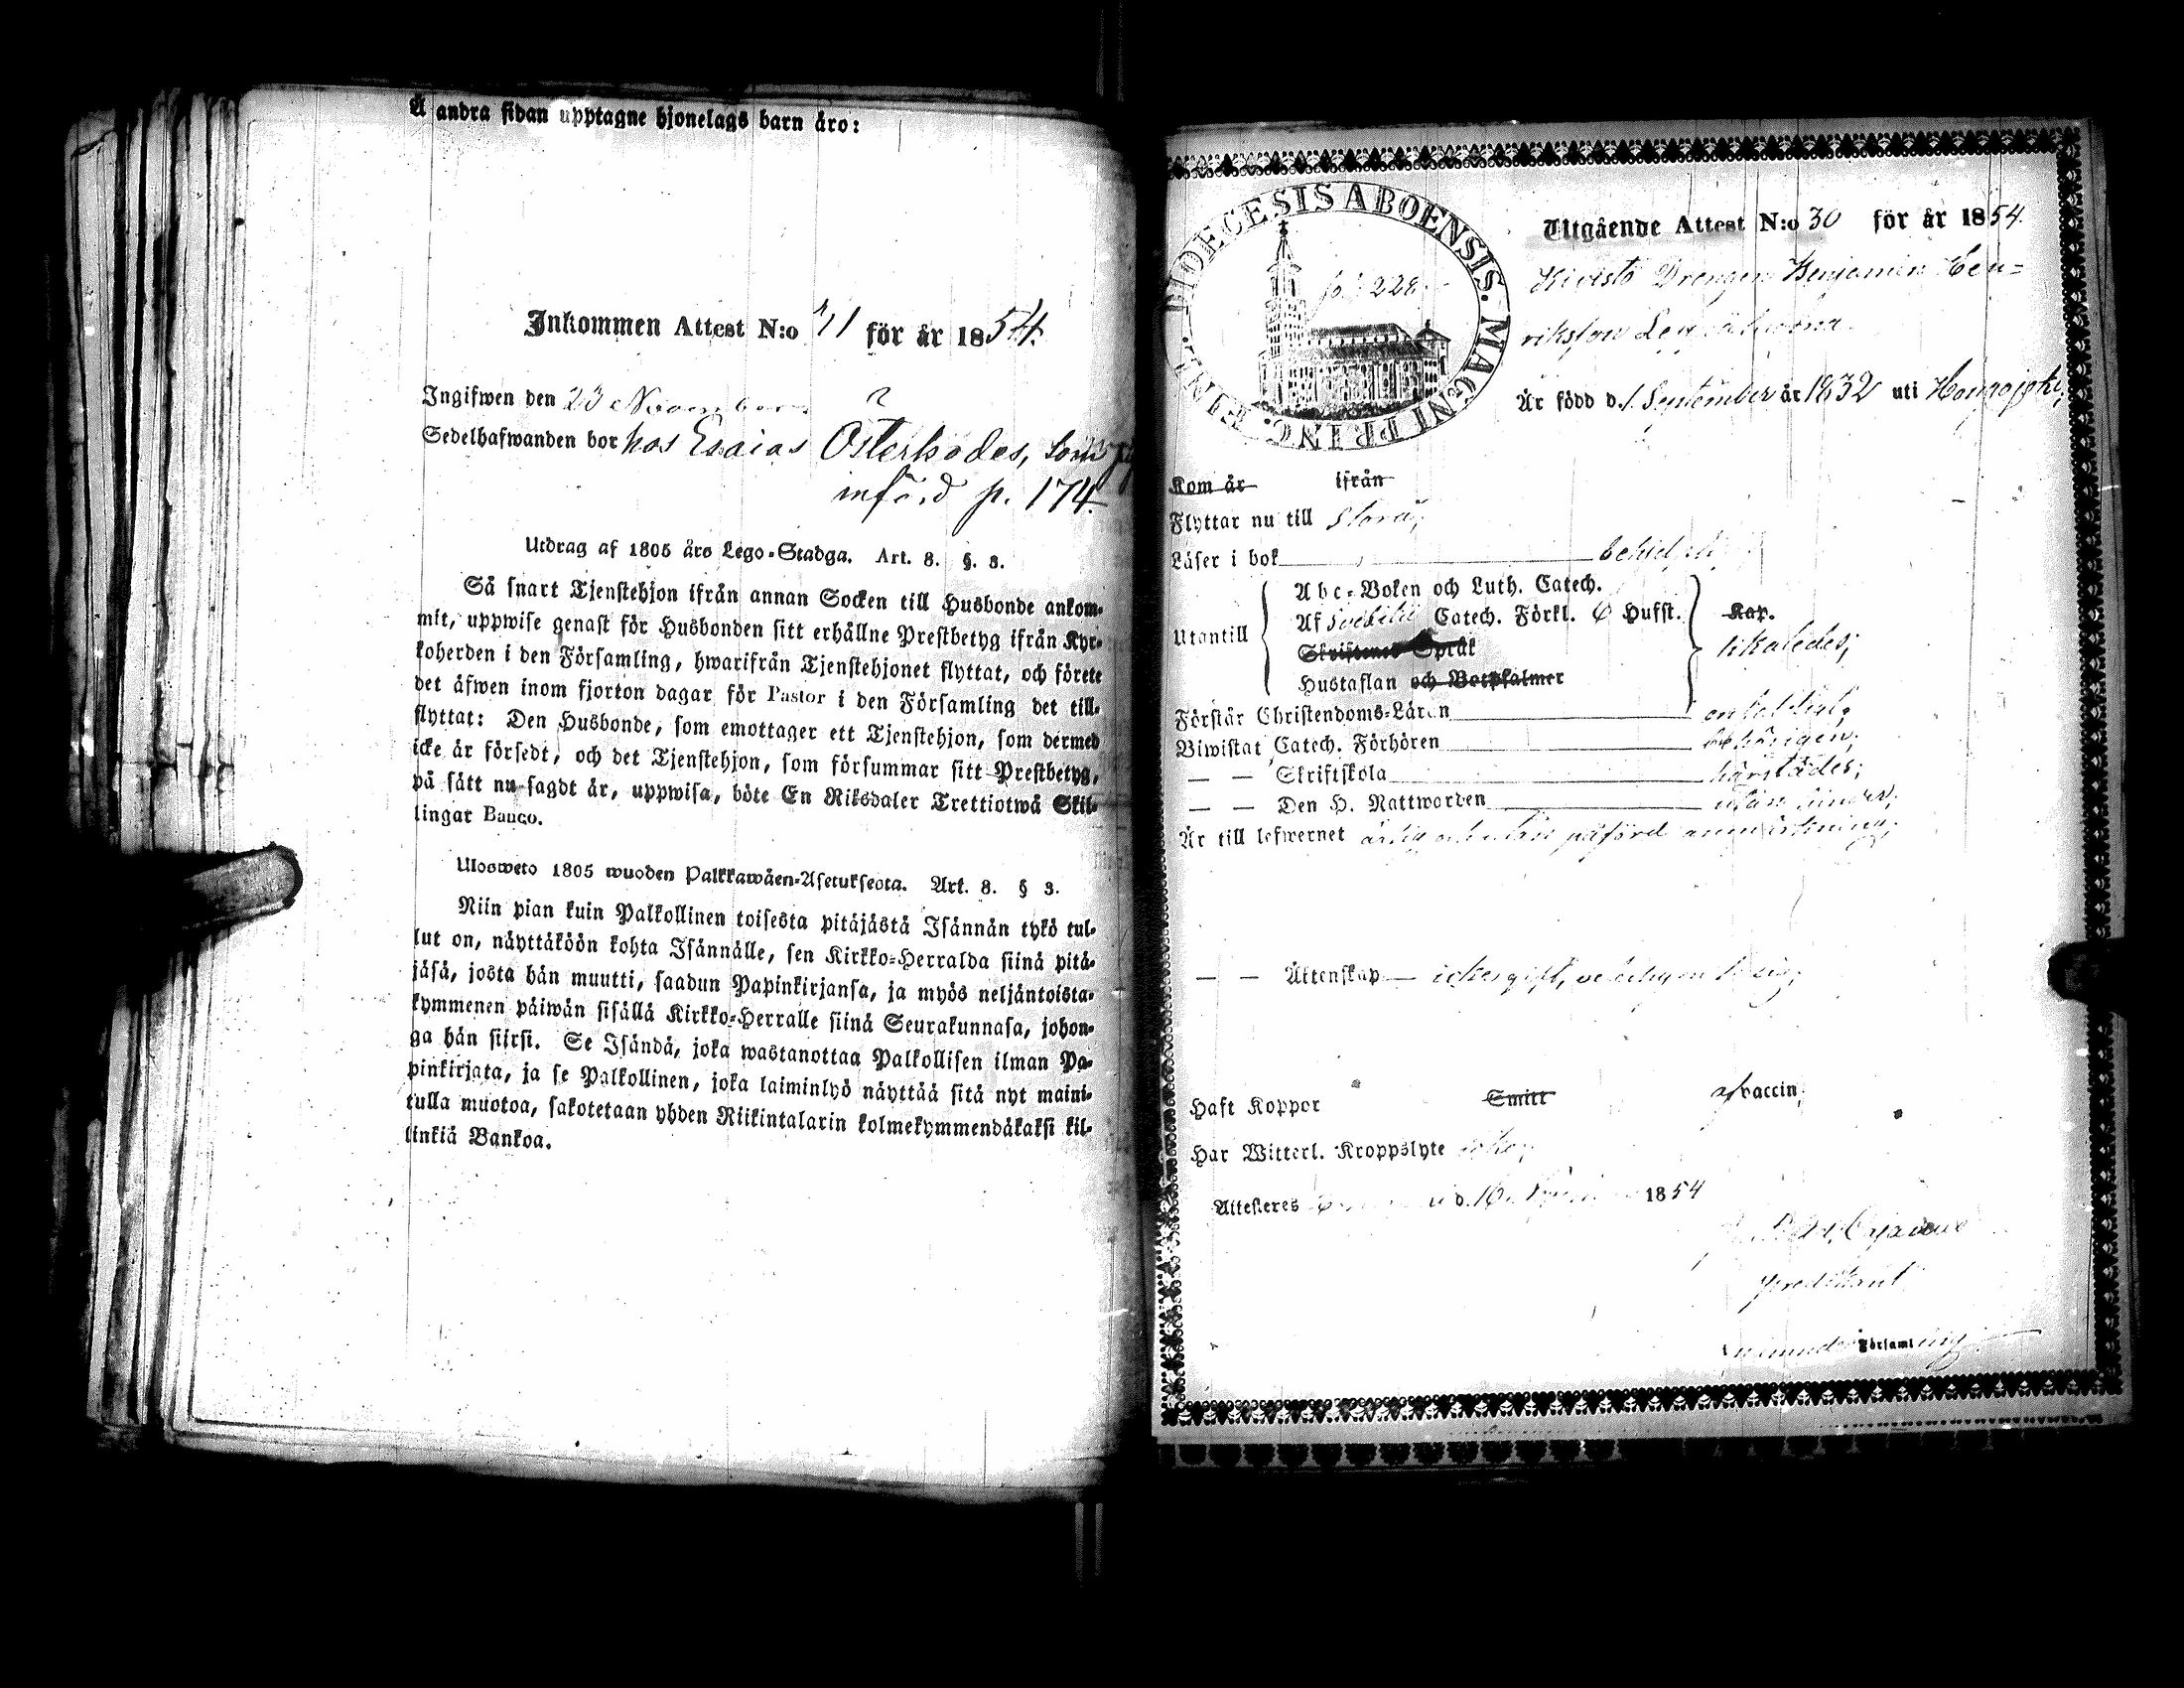 Å andra sidan upptagne hjonelags barn äro:
Inkommen Attest N:o 41 för år 1854.
Ingifwen den 23 November
Sedelhafwanden bor hos Esaias Österkodes, som
införd p. 174.
Utdrag af 1805 års Lego-Stadga. Art. 8. §. 3.
Så snart Tjenstehjon ifrån annan Socken till Husbonde ankom-
mit, uppwise genast för Husbonden sitt erhållne Prestbetyg ifrån Kyr-
koherden i den Församling, hwarifrån Tjenstehjonet flyttat, och förete
det äfwen inom fjorton dagar för Pastor i den Församling det till-
flyttat: Den Husbonde, som emottager ett Tjenstehjon, som dermed
icke är försedt, och det Tjenstehjon, som försummar sitt Prestbetyg,
på sätt nu sagdt är, uppwisa, böte En Riksdaler Trettiotwå Skil-
lingar Banco.
Ulosweto 1805 wuoden Palkkawäen-Asetuksesta. Art. 8. § 3.
Niin pian kuin Palkollinen toisesta pitäjästä Isännän tykö tul-
lut on, näyttäköön kohta Isännälle, sen Kirkko-Herralda siinä pitä-
jäsä, josta hän muutti, saadun Papinkirjansa, ja myös neljäntoista-
kymmenen päiwän sisällä Kirkko-Herralle siinä Seurakunnasa, johon-
ga hän siirsi. Se Isändä, joka wastanottaa Palkollisen ilman Pa-
pinkirjata, ja se Palkollinen, joka laiminlyö näyttää sitä nyt maini-
tulla muotoa, sakotetaan yhden Riikintalarin kolmekymmendäkaksi kil-
linkiä Bankoa.
DIOECESIS ABOENSIS. MAGNI PRINC. FINL.
228
Utgående Attest N:o 30 för år 1854.
Kivistö Drengen Benjamin Hen-
riksson
Är född d. 1 September år 1832 uti Hongojoki,
Kom år ifrån
Flyttar nu till Storå,
Läser i bok
Abc-Boken och Luth. Catech.
Utantill
Af Svebilii Catech. Förkl. 6 Hufst. Kap.
Skriftenes Språk likaledes;
Hustaflan och Botpsalmer
Förstår Christendoms-Läran enfaldigt,
Biwistat Catech. Förhören behörigen,
— — Skriftskola härstädes;
— — Den H. Nattwarden utan hinder,
Är till lefwernet ärlig och utan påförd anmärkning,
— — Äktenskap — icke gift,
Haft Koppor Smitt af vaccin,
Har Witterl. Kroppslyte
Attesteres d. 16 1854
Predikant
Församling